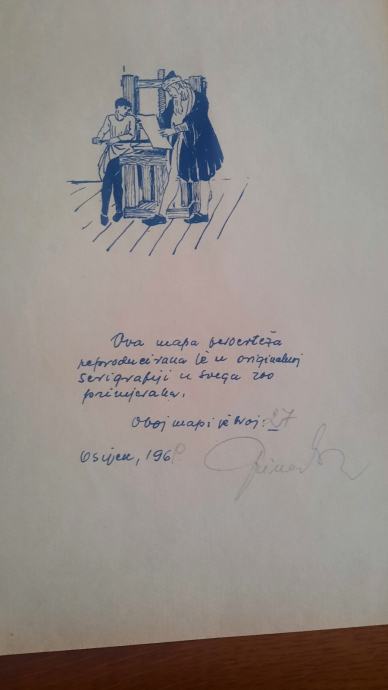 Ova mapa perocrteža
reproducirana je u originalnoj
serigrafiji u svega 200
primjeraka.
Ovoj mapi je broj: 27
Osijek, 196